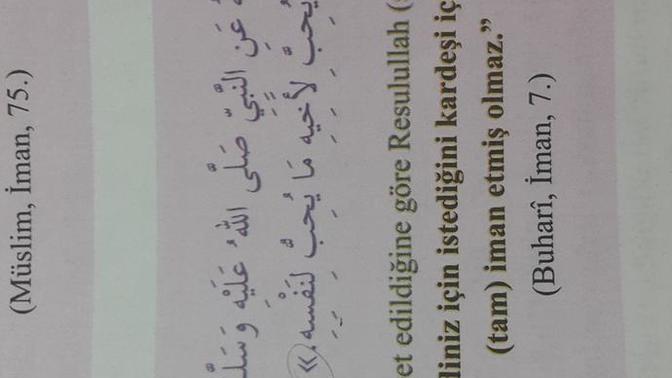 (Müslim, İman, 75.)
عَنِ النَّبِيِّ صَلَّى اللهُ عَلَيْهِ وَسَلَّ
يُحِبَّ لِأَخِيهِ مَا يُحِبُّ لِنَفْسِهِ.»
et edildiğine göre Resulullah (
diniz için istediğini kardeşi iç
(tam) iman etmiş olmaz.”
(Buharî, İman, 7.)